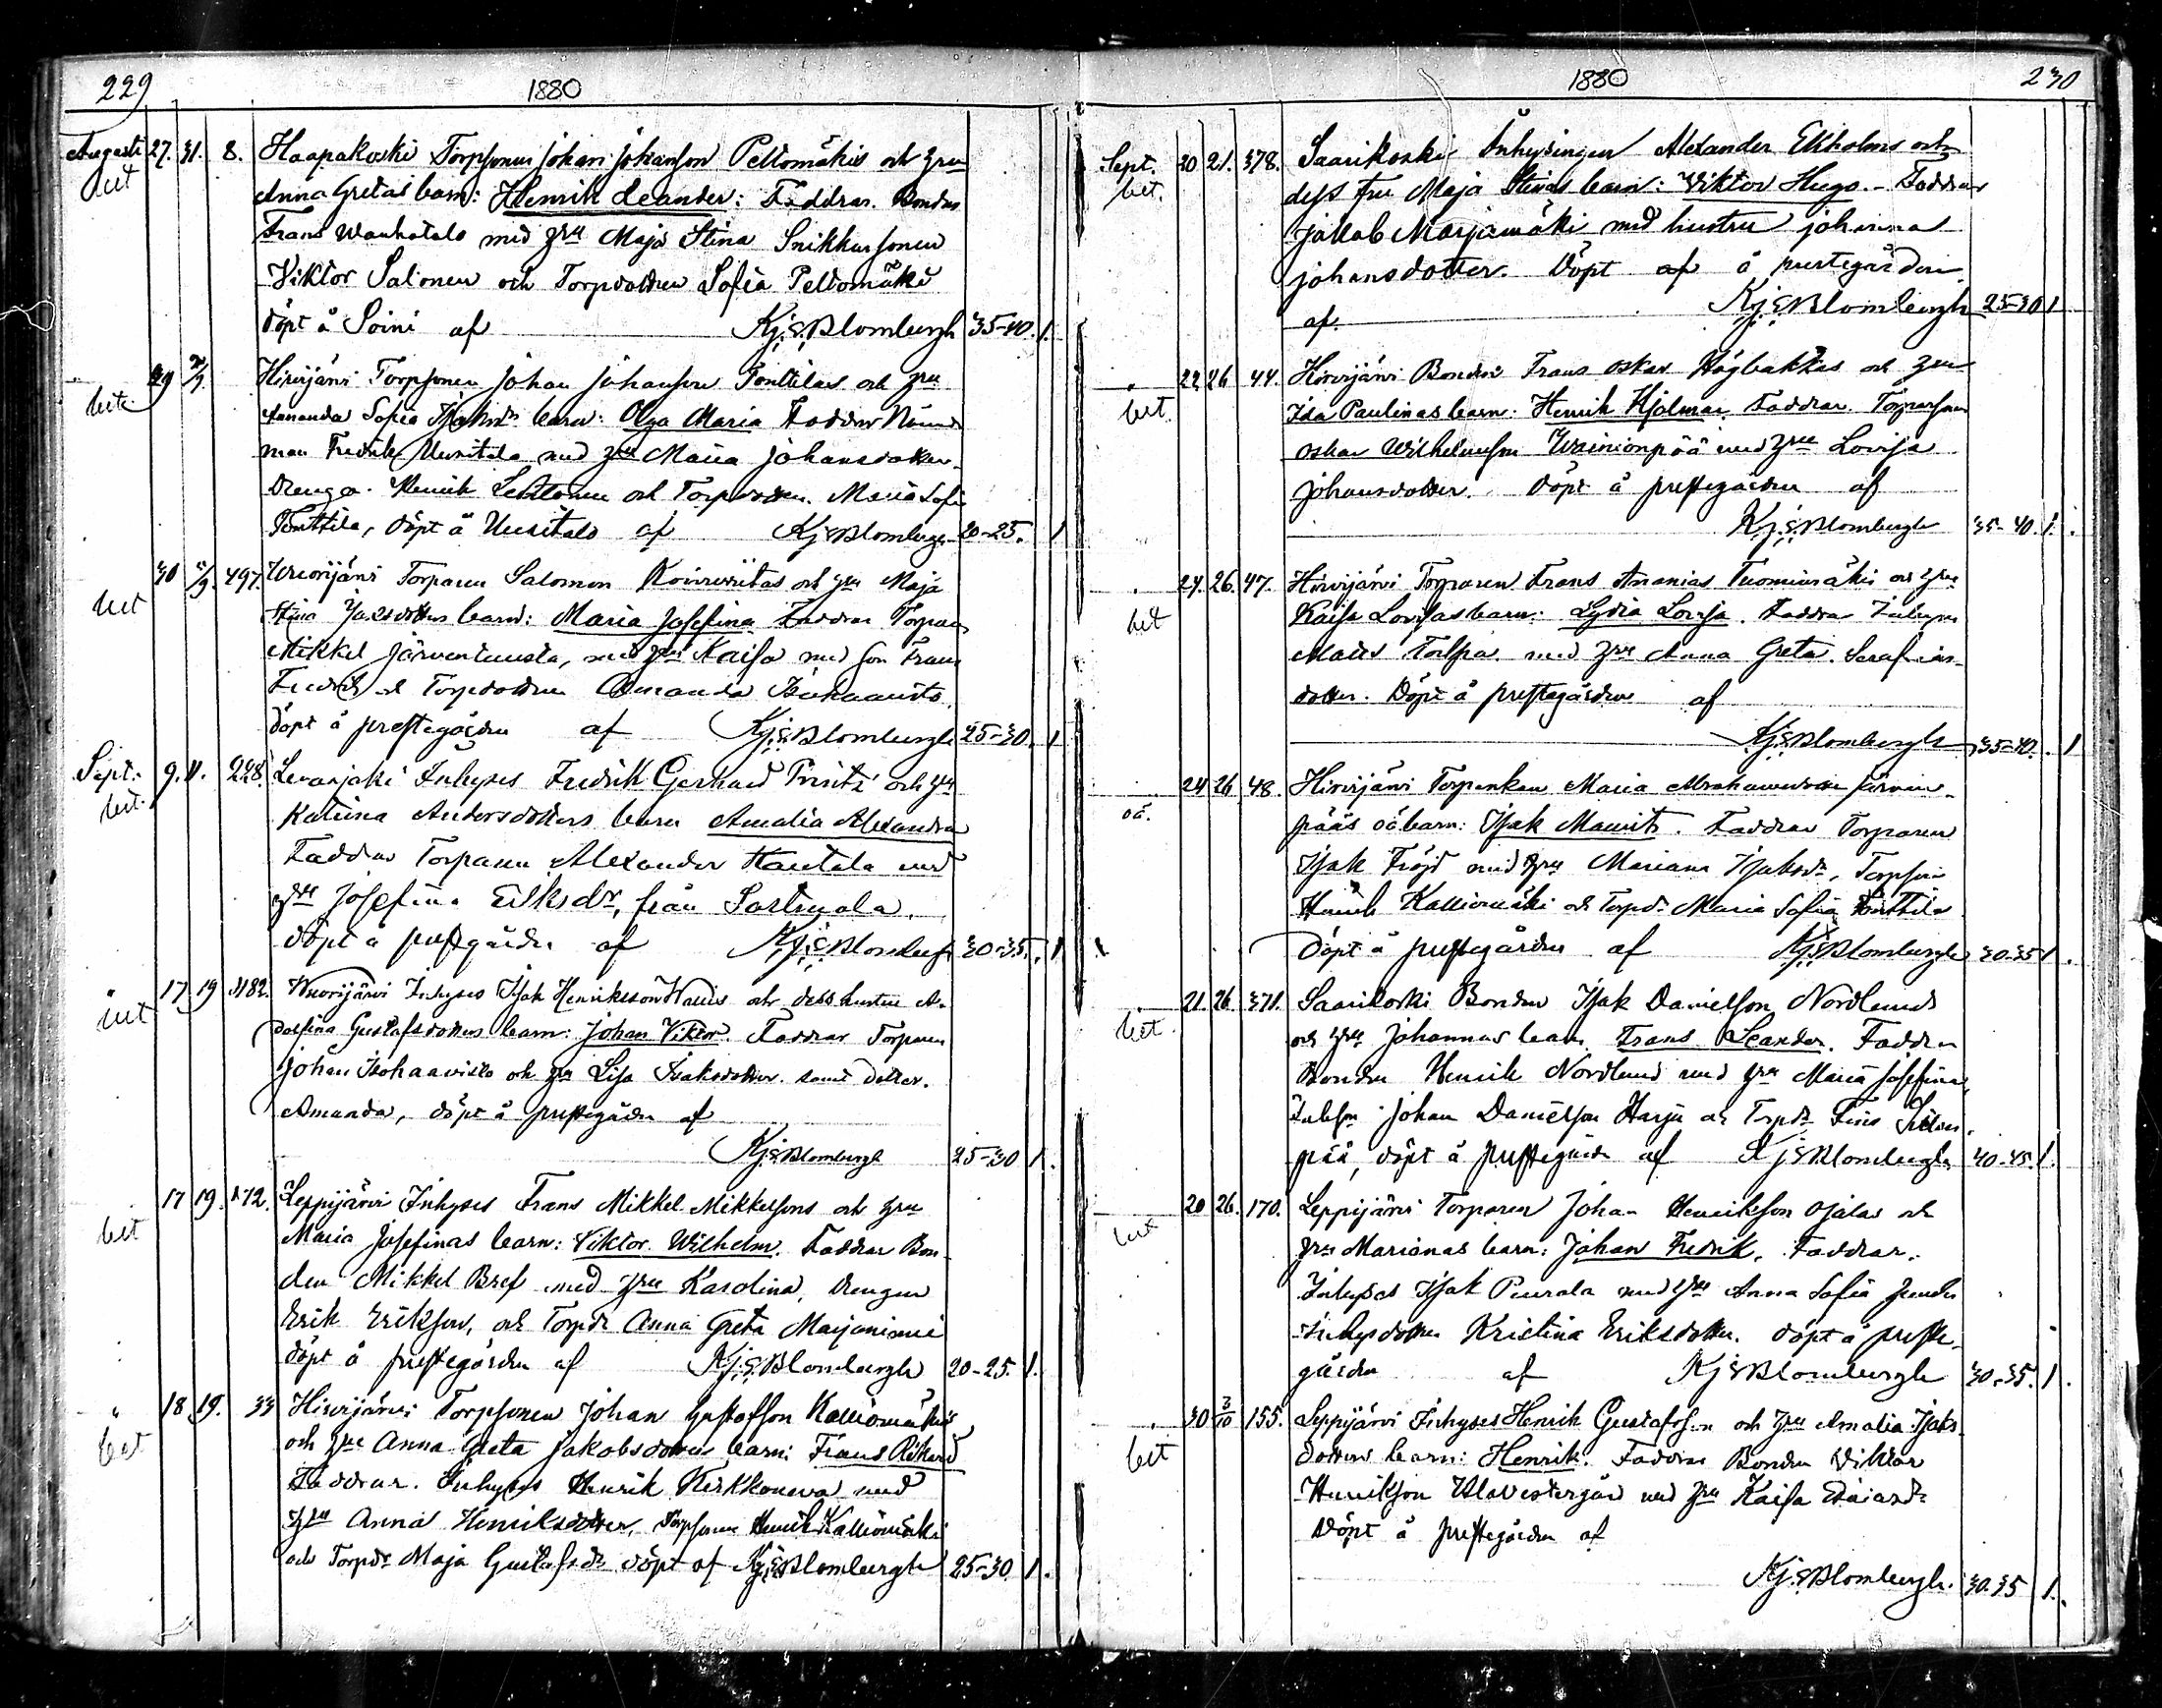 229 1880
Augusti 27. 31. 8. Haapakoski Torpsonen Johan Johanson Peltomäkis och hru
bet Anna Gretas barn: Henrik Leander: Faddrar. Bonden
Frans med hru Maja Stina Snikkarsonen
Viktor Salonen och Torpdottren Sofia Peltomäki
döpt å Soini af Kj:s:Blombergh 35-40. 1.
29 Hirvijärvi Torpsonen Johan Johanson Penttilas och hru
bet. Amanda Sofia barn: Olga Maria Faddrar
man Fredrik Uusitalo med hru Maria Johansdotter
Drengen Henrik Lehtonen och Torpdottren Maria Sofia
Penttila, döpt å Uusitalo af KjsBlombergh 20-25. 1
30 497. Wuorijärvi Torparen Salomon och hru Maja
bet Stina barn: Maria Josefina Faddrar Torparen
Mikkel med hru Kaisa med son Frans
Fredrik och Torpdottren Amanda
döpt å prestegården af Kj:s:Blombergh 25-30. 1
Sept. 9. 11. 228. Inhyses Fredrik Gerhard och hru
bet. Katrina Andersdotters barn Amalia Alexandra
Faddrar Torparen Alexander Hautala med
hru Josefina Eriksdr, från
döpt å prestgården af Kj:s:Blombergh 30-35. 1
" 17 19 182. Wuorijärvi Inhyses Isak Henriksson och dess hustru A-
bet dolfina Gustafsdotters barn: Johan Viktor. Faddrar Torparen
Johan Isohaavisto och hru Lisa Isaksdotter samt dotter
Amanda, döpt å prestegården af
Kj:s:Blombergh 25-30 1.
17 19. 172. Leppijärvi Inhyses Frans Mikkel Mikkelsons och hru
bet Maria Josefinas barn: Viktor Wilhelm. Faddrar Bon-
den Mikkel Bref med hru Karolina, Drengen
Erik Erikson, och Torpdr Anna Greta Marjaniemi
döpt å prestegården af Kj:s:Blombergh 20-25. 1.
" 18 19. 33 Hirvijärvi Torpsonen Johan Gustafson Kalliomäkis
bet och hru Anna Greta Jakobsdotters barn: Frans Rikard
Faddrar. Inhyses Henrik Kirkkoneva med
hru Anna Henriksdotter, Torpsonen Henrik Kalliomäki
och Torpdr Maja Gustafsdr döpt af Kj:s:Blombergh 25-30 1.
1880 230
Sept. 20 21. 378. Saarikoski Inhysingen Alexander Ekholms och
bet. dess fru Maja Stinas barn: Viktor Hugo. - Faddrar
Jakob Marjamäki med hustru Johanna
Johansdotter. Döpt af å prestegården
af Kj:s:Blombergh 25-30 1
" 22 26 44. Hirvijärvi Bonden Frans Oskar Högbackas och hru
bet. Ida Paulinas barn: Henrik Hjalmar Faddrar Torparson
Oskar Wilhelmson Wainionpää med hru Lovisa
Johansdotter. Döpt å prestegården af
Kj:s:Blombergh 35-40. 1.
" 24. 26. 47. Hirvijärvi Torparen Frans Ananias Tuomimäkis och hru
bet Kaisa Lovisas barn: Lydia Lovisa. Faddrar Inhyses
Matts Talpa med hru Anna Greta Serafias-
dotter. Döpt å prestegården af
Kj:s:Blombergh 35-40. 1
24 26 48. Hirvijärvi Torpenkan Maria Abrahamsdotter Järven-
oä. pääs oä barn: Isak Mauritz. Faddrar Torparen
Isak Fröjd med hru Mariana Isaksdr, Torpson
Henrik Kalliomäki och Torpdr Maria Sofia Penttila
Döpt å prestegården af Kj:s:Blombergh 30-35 1.
21. 26. 371. Saarikoski Bonden Isak Danielson Nordlunds
bet och hru Johannas barn Frans Leander. Faddrar
Bonden Henrik Nordlund med hru Maria Josefina,
Johan Danielson Harju och Torpdr
pää, döpt å prestegården af KjsBlombergh 40-45. 1.
20 26. 170. Leppijärvi Torparen Johan Henrikson Ojalas och
bet hru Marianas barn: Johan Fredrik. Faddrar.
Inhyses Isak Peurala med hru Anna Sofia
Inhysdotter Kristina Eriksdotter. Döpt å preste-
gården af KjsBlombergh 30-35. 1.
30 3/10 155. Leppijärvi Inhyses Henrik Gustafson och hru Amalia Isaks-
bet dotters barn: Henrik. Faddrar Bonden Viktor
Henrikson med hru Kaisa
Döpt å prestegården af
Kj:s:Blombergh. 30-35 1.